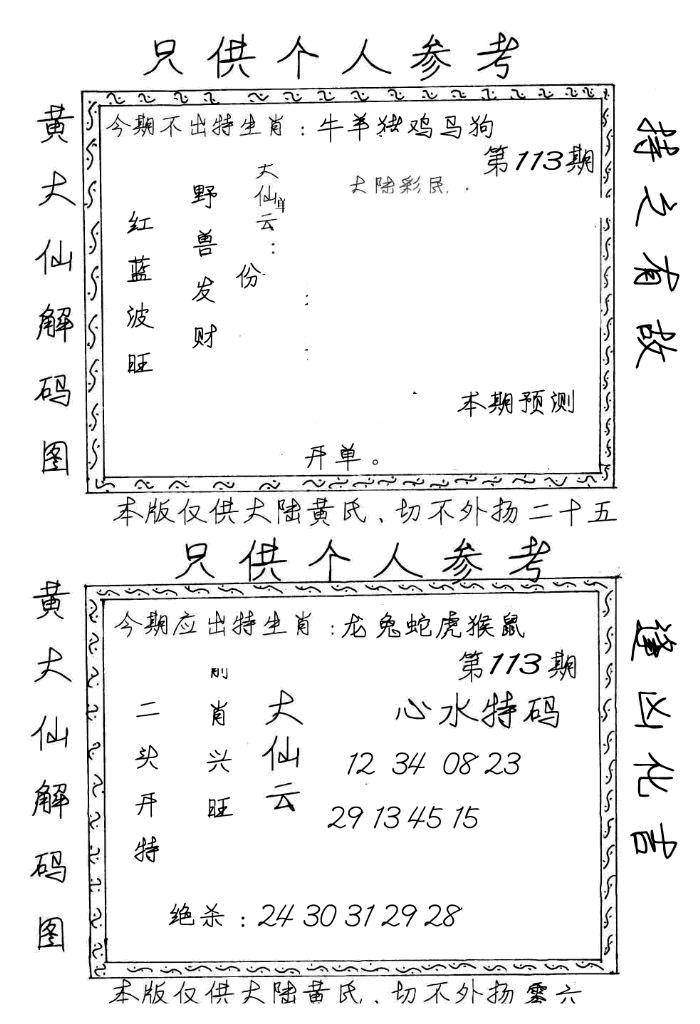 只供个人参考
黄大仙解码图
今期不出特生肖：牛羊猪鸡马狗
第113期
大陆彩民.
大仙云：
单
份
野兽发财
红蓝波旺
本期预测
开单。
持之有故
本版仅供大陆黄氏、切不外扬二十五
只供个人参考
黄大仙解码图
今期应出特生肖：龙兔蛇虎猴鼠
第113期
心水特码
大仙云
前肖兴旺
二头开特
12 34 08 23
29 13 45 15
绝杀：24 30 31 29 28
逢凶化吉
本版仅供大陆黄氏、切不外扬零六